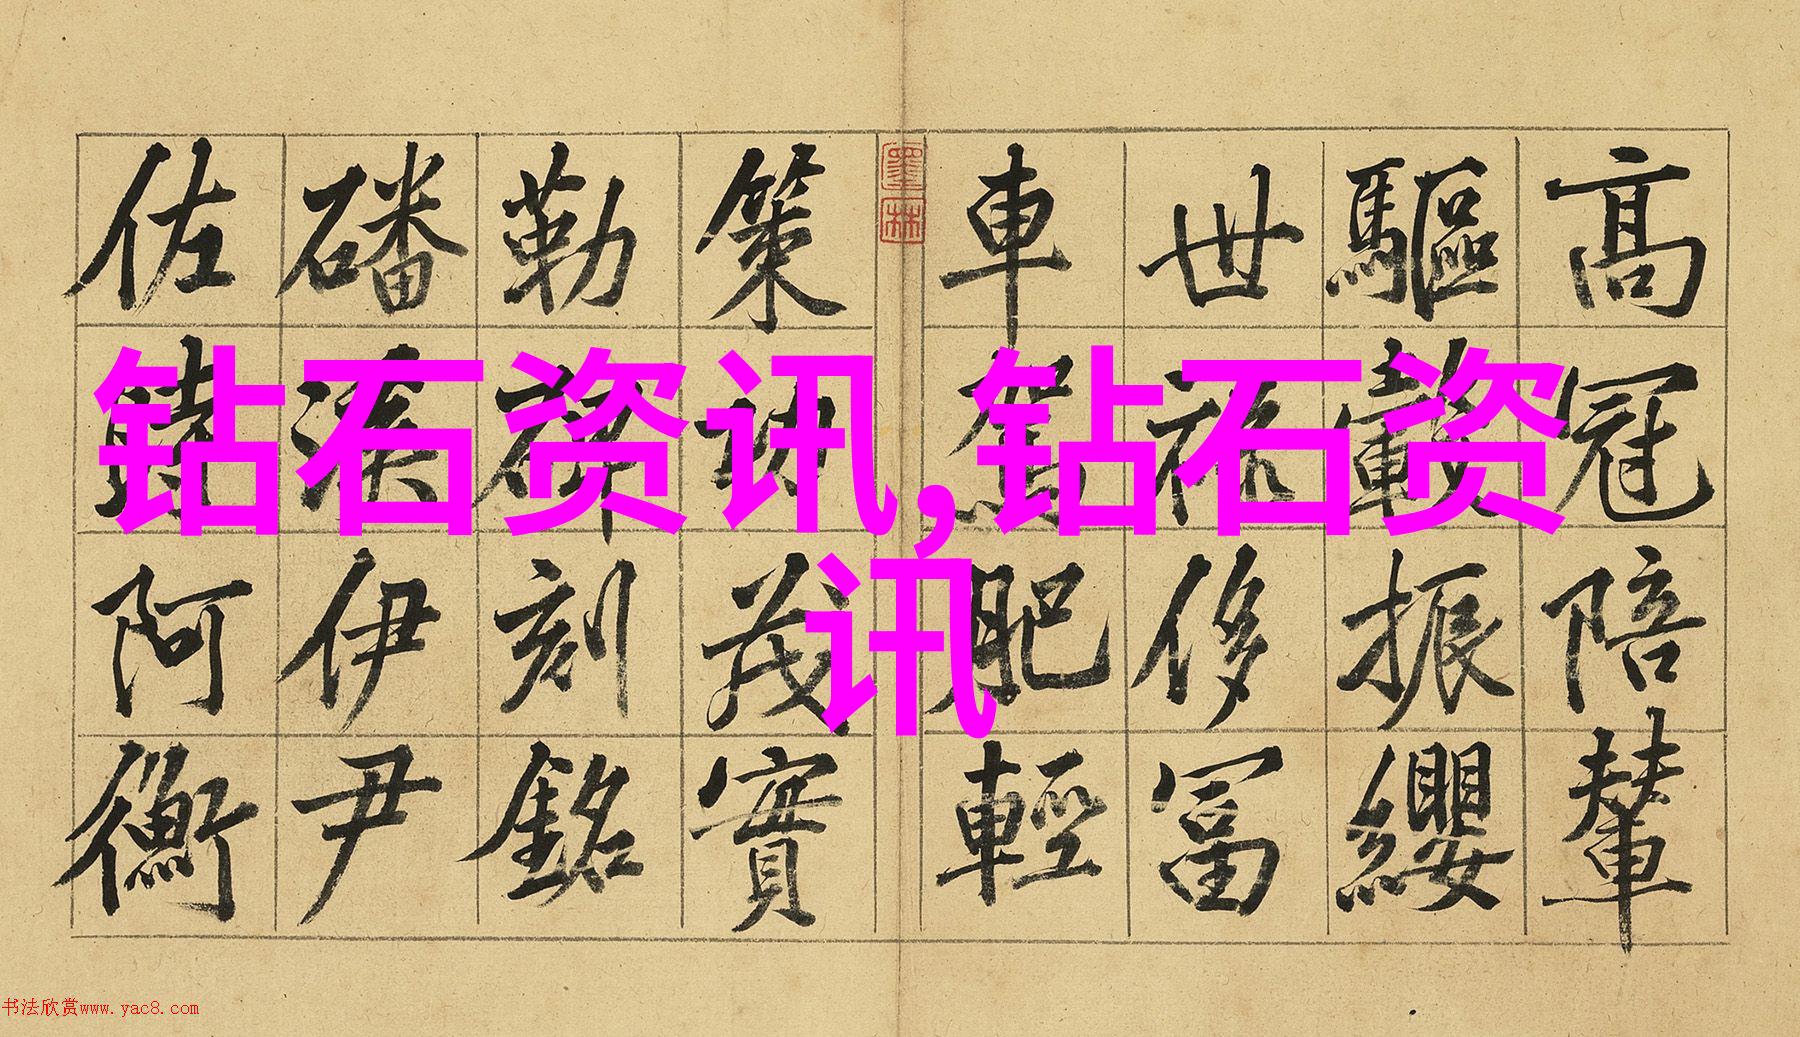 高冠陪輦
驅轂振纓
世祿侈富
車駕肥輕
墨林
策功茂實
勒碑刻銘
磻溪伊尹
佐時阿衡
钻石资讯,钻石资
讯
书法欣赏www.yac8.com